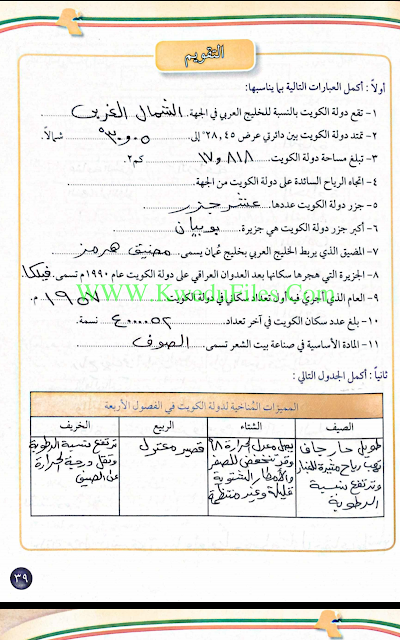 التقويم
أولاً : أكمل العبارات التالية بما يناسبها:
١- تقع دولة الكويت بالنسبة للخليج العربي في الجهة. الشمال الغربي
٢- تمتد دولة الكويت بين دائرتي عرض ٢٨,٤٥° إلى ٣٠,٠٥° شمالاً.
٣- تبلغ مساحة دولة الكويت ١٧٫٨١٨ كم٢.
٤- اتجاه الرياح السائدة على دولة الكويت من الجهة
٥- جزر دولة الكويت عددها. عشر جزر
٦- أكبر جزر دولة الكويت هي جزيرة. بوبيان
٧- المضيق الذي يربط الخليج العربي بخليج عُمان يسمى. مضيق هرمز
٨- الجزيرة التي هجرها سكانها بعد العدوان العراقي على دولة الكويت عام ١٩٩٠م تسمى. فيلكا
٩- العام الذي أجري فيه أول تعداد سكاني في دولة الكويت ١٩٥٧ م.
WWW.KweduFiles.Com
١٠- بلغ عدد سكان الكويت في آخر تعداد. نسمة.
١١- المادة الأساسية في صناعة بيت الشعر تسمى. الصوف
ثانياً : أكمل الجدول التالي :
المميزات المُناخية لدولة الكويت في الفصول الأربعة
الصيف الشتاء الربيع الخريف
طويل حار جاف يصل معدل الحرارة ١٨ قصير معتدل ترتفع نسبة الرطوبة
تهب رياح مثيرة للغبار وقد تنخفض للصفر وتقل درجة الحرارة
وترتفع نسبة والأمطار الشتوية عن الصيف
الرطوبة قليلة وغير منتظمة
٣٩